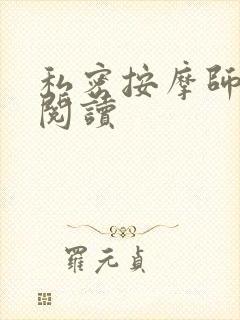 私密按摩師
閱讀
羅元貞